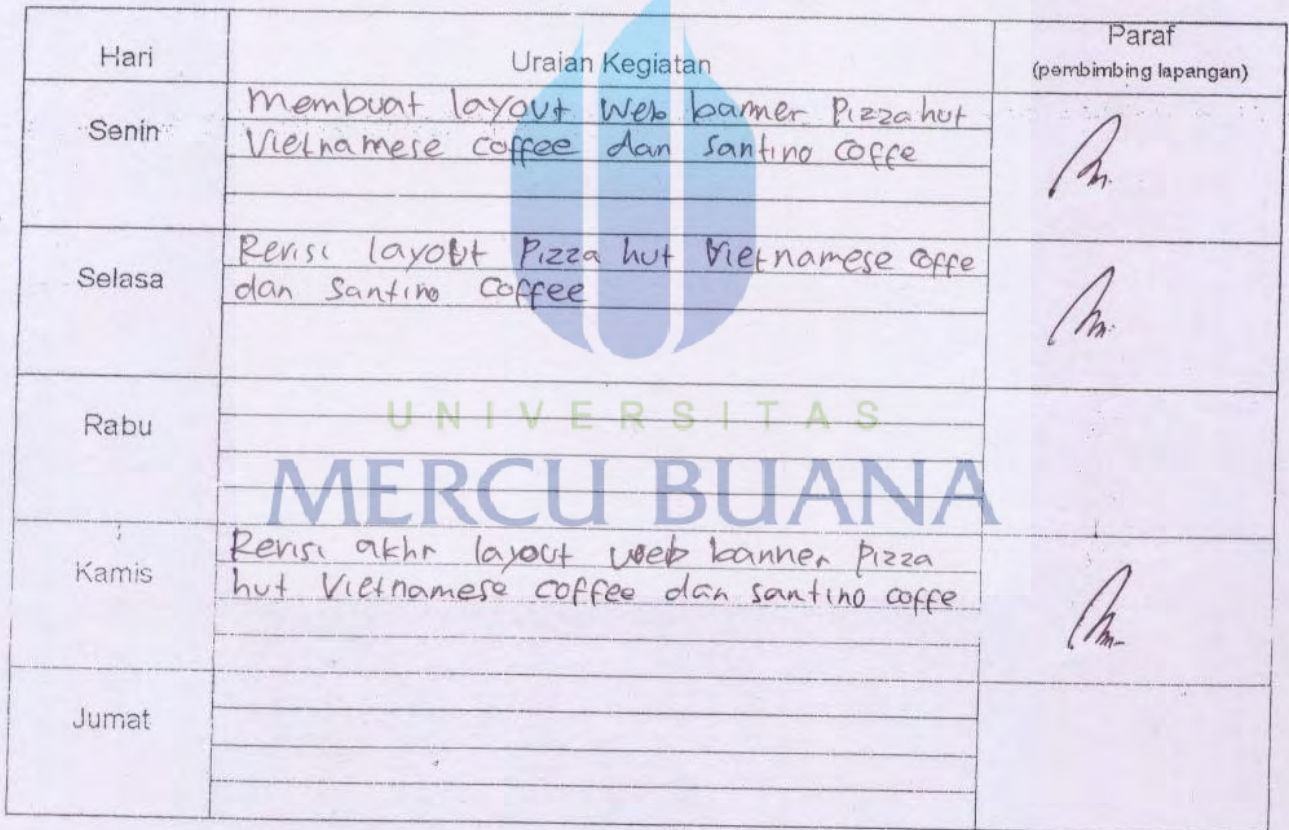 Hari Uraian Kegiatan Paraf
(pembimbing lapangan)
Senin
Membuat layout Web banner Pizza hut
Vietnamese coffee dan Santino Coffe
Selasa
Revisi layout Pizza hut Vietnamese coffe
dan Santino Coffee
Rabu
UNIVERSITAS
MERCU BUANA
Kamis
Revisi akhr layout web banner pizza
hut Vietnamese coffee dan santino coffe
Jumat